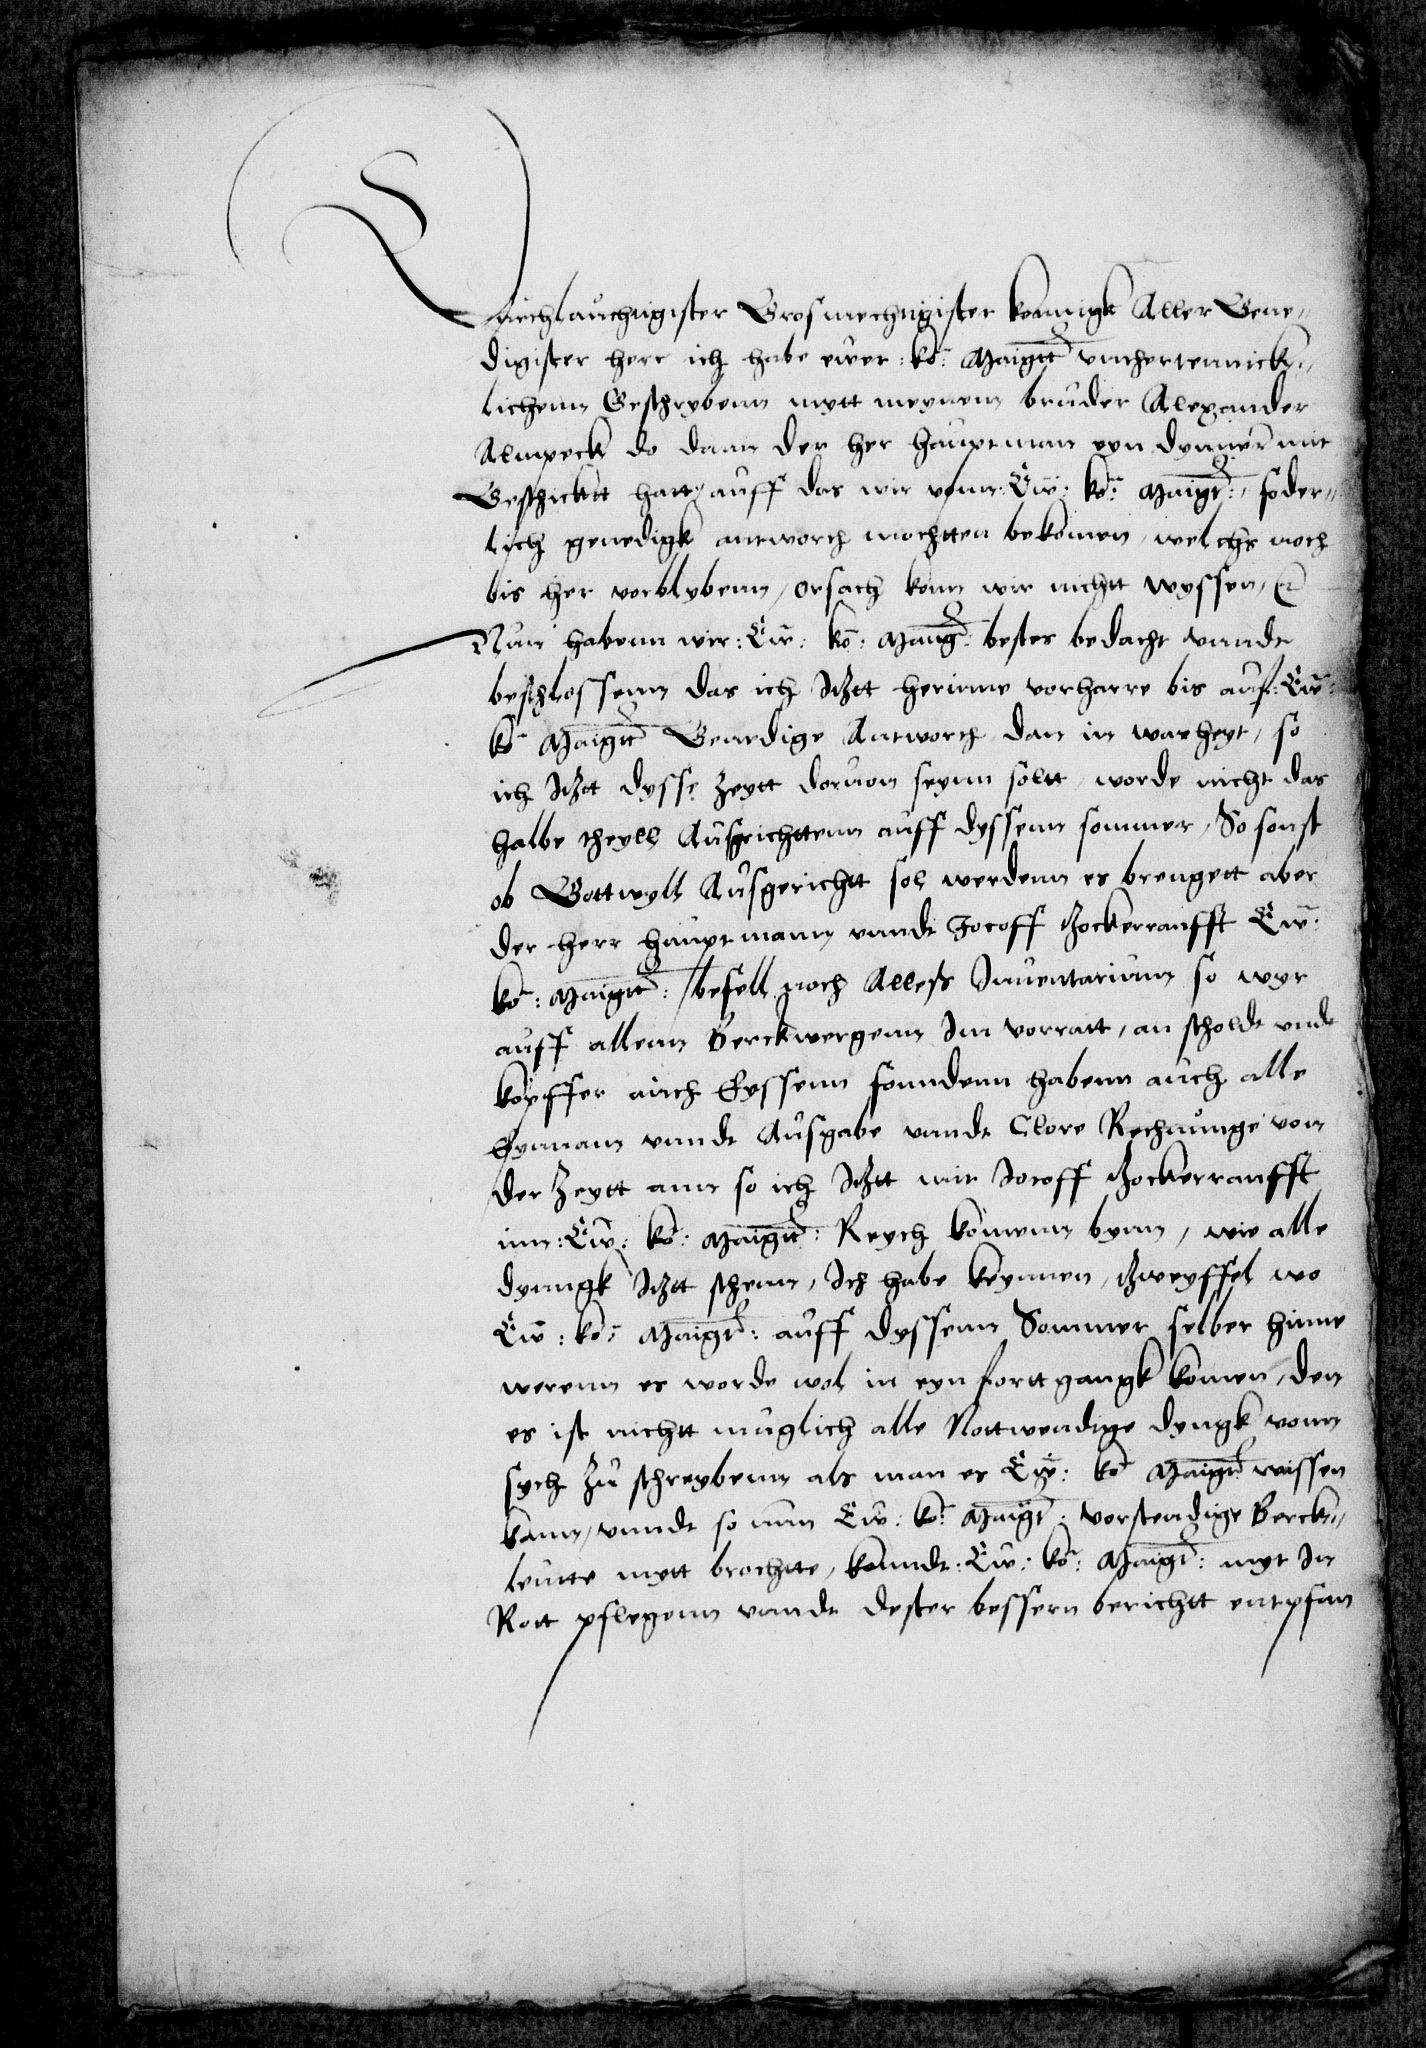 Durchlauchtigister Grosmechtigister konnigk Aller Gene„
digister herr ich habe ewer: ko: Maigtt unthertennick„
lichenn Geschrybenn mytt meynem bruder Alexander
Almpeck do dann der her hauptman eyn dynner mit
Geschicktt hatt, auff das wir vonn: Ew: ko: Maigt:, foder„
lich genedigk antworth mochtten bekomen, welchs noch
bis her vorblybenn, orsach konn wir nichtt wyssen, etc
Nun habenn wir: Ew: ko: Maigt: bestes bedacht unnde
beschlossenn das ich Itztt herinne vorharre bis auf: Ew:
ko: Maigtt Genedige Antworth dan in warheyt, so
ich Itztt dysse zeytt doruon seynn soltt, worde nicht das
halbe theyll Ausgerichttenn auff dyssenn sommer, So sonst
ob Gott wyll Ausgerichtt sol werdenn es brengett aber
der herr hauptmann unnde Jocoff tzockerranfft Ew:
ko: Maigtt: befell noch Alless Inuentarium so wyr
auff allenn Berckwergenn Im vorratt, an scholde unde
kopffer auch Eyssenn fonndenn habenn auch alle
Eynnam unnde Ausgabe unnde Clore Rechnunge von
der zeytt ann so ich Itztt mit Jocoff tzockerranfft
inn: Ew: ko: Maigtt: Reych komenn bynn, wie alle
dynngk Itztt sthenn, Ich habe keynnen, tzweyffel wo
Ew: ko: Maigt: auff dyssenn Sommer selber hinne
werenn es worde wol in eyn forttgangk komen, den
es ist nichtt muglich alle Nottwendige dyngk vonn
sych zu schreybenn als man es Ew: ko: Maigtt wissen
kann, unnde so nun Ew: ko: Maigt: vorstendige Berck„
leutte mytt brochtte, konnde: Ew: ko: Maigt: myt In
Rott pflegenn unnde dester bessern berichtt entpfan